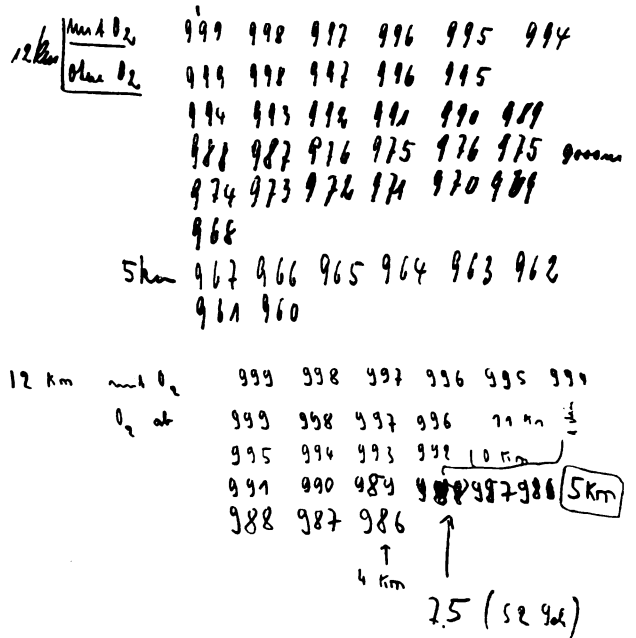 12 km mit O2 999 998 997 996 995 994
ohne O2 999 998 997 996 995
994 993 992 991 990 989
988 987 976 975 976 975 9000m
974 973 972 971 970 969
968
5km 967 966 965 964 963 962
961 960
12 Km mit O2 999 998 997 996 995 994
O2 ab 999 998 997 996 11 Km
995 994 993 992 10 Km
991 990 989 988 987 986 5Km
988 987 986
4 Km
7.5